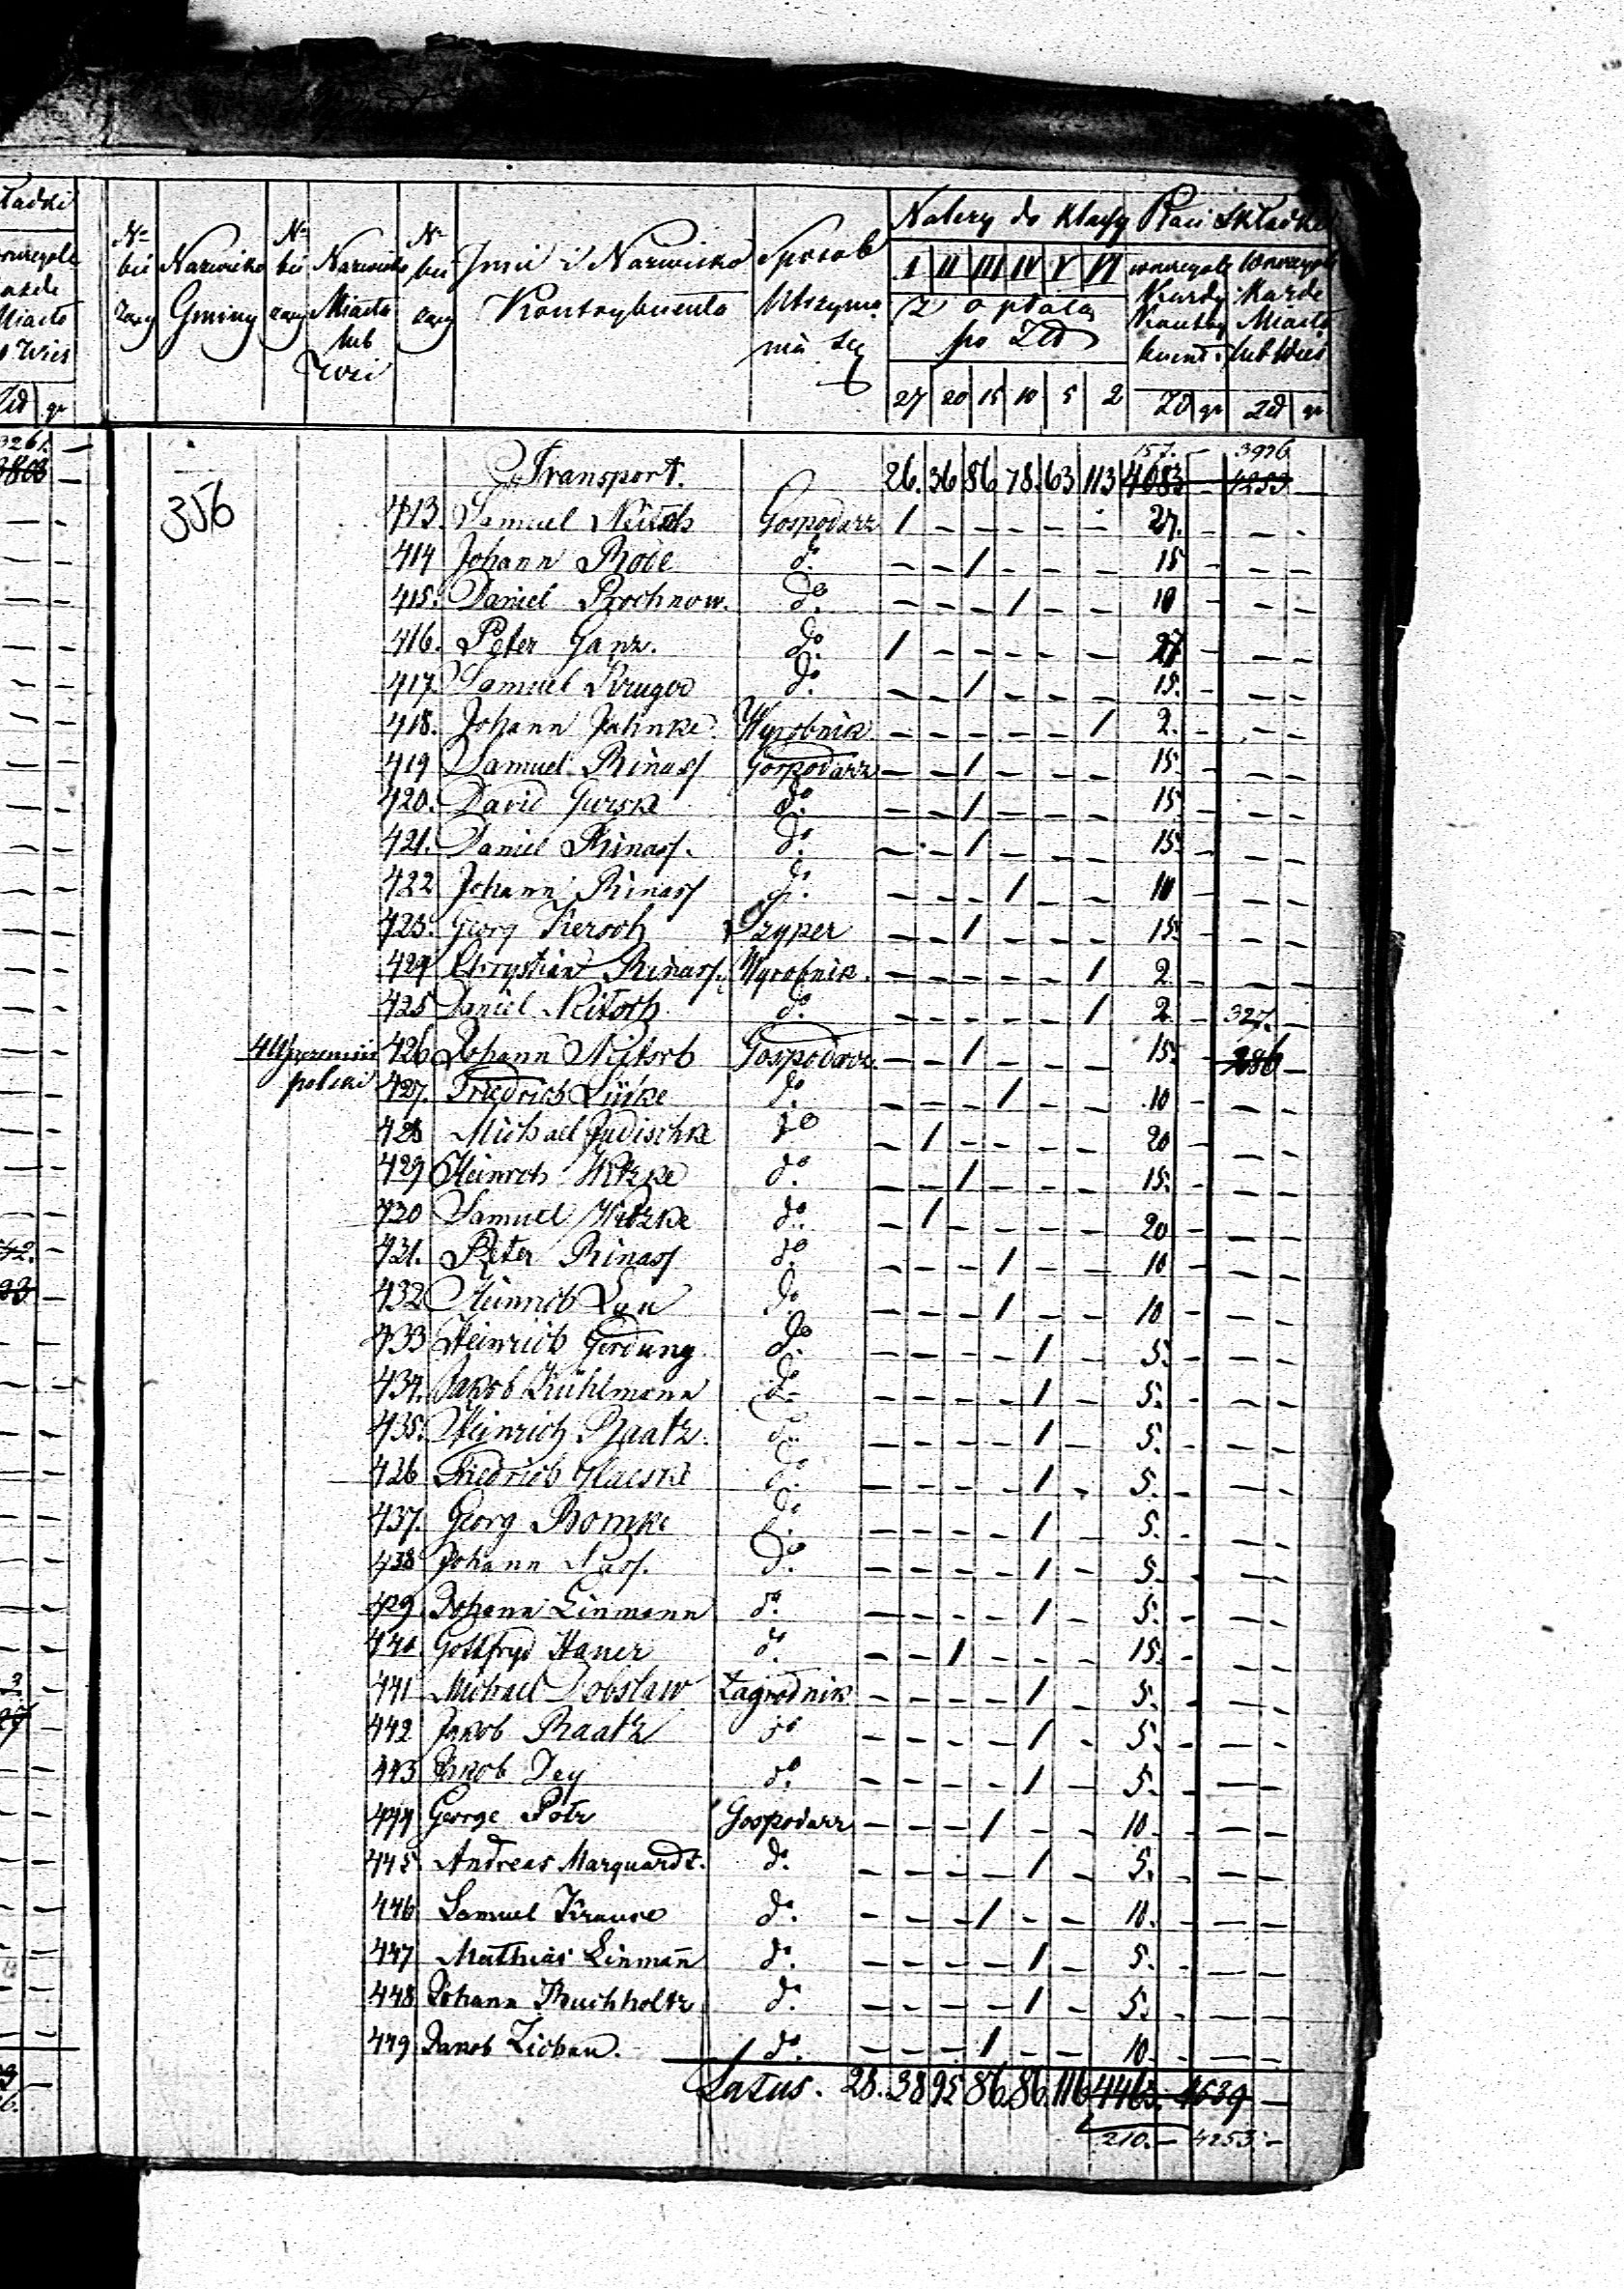 Należy do klassy Płaci Składki
№ bie żący Nazwisko Gminy № bie żący Nazwisko Miasta lub Wsi № bie żący Imie i Nazwisko Kontrybuenta Sposob utrzyma nia się I II III IV V VI
z opłatą po Złd
27 20 15 10 5 2 Zł gr Złd gr
157. — 3926
Transport. 26. 36 86 78. 63 113 4083 — 4253 —
356
413. Samuel Neitsch Gospodarz 1 — — — — — 27. — — —
414 Johann Rode do. — — 1 — — — 15 — — —
415. Daniel Prochnow. do. — — — 1 — — 10 — — —
416. Peter Ganz. do. 1 — — — — — 27 — — —
417. Samuel Kruger do. — — 1 — — — 15. — — —
418. Johann Jahnke. Wyrobnik — — — — — 1 2. — — —
419 Samuel Rinass Gospodarz — — 1 — — — 15. — — —
420. David Gurske do. — — 1 — — — 15. — — —
421. Daniel Rinass. do. — — 1 — — — 15. — — —
422 Johann Rinass do. — — — 1 — — 10 — — —
423. Georg Kersch Szyper — — 1 — — — 15. — — —
424 Chrystian Rinass. Wyrobnik. — — — — — 1 2 — — —
425 Daniel Neitsch do. — — — — — 1 2. — 327. —
426 Johann Nejtsch Gospodarz. — — 1 — — — 15. — 286 —
polski 427. Friedrich Lüke do. — — — 1 — — 10 — — —
428 Michael Judischke do — 1 — — — — 20 — — —
429 Heinrich Witzke do. — — 1 — — — 15. — — —
430 Samuel Witzke do. — 1 — — — — 20 — — —
431. Peter Rinass do. — — — 1 — — 10 — — —
432 Heinrich do. — — — 1 — — 10 — — —
433 Heinrich Gerdung do. — — — — 1 — 5. — — —
434. Jakob Kühlmann do. — — — — 1 — 5. — — —
435. Heinrich Raatz. do. — — — — 1 — 5. — — —
436 Friedrich Glaeske do. — — — — 1 — 5. — — —
437. Georg Bomke do. — — — — 1 — 5. — — —
438 Johann Nass. do. — — — — 1 — 5. — — —
439. Johann Linmann do. — — — — 1 — 5. — — —
440. Gottfryd Haner do. — — 1 — — — 15. — — —
441 Michael Dobslaw Zagrodnik — — — — 1 — 5. — — —
442 Jakob Raatz do — — — — 1 — 5. — — —
443 Jakob Dey do. — — — — 1 — 5. — — —
444 George Potz Gospodarz — — — 1 — — 10. — — —
445 Andreas Marquardt. do. — — — — 1 — 5. — — —
446 Samuel Krause do. — — — 1 — — 10. — — —
447 Mathias Linmañ do. — — — — 1 — 5. — — —
448 Johann Buchholtz do. — — — — 1 — 5. — — —
449 Jakob Zieban. do. — — — 1 — — 10. — — —
Latus. 28. 38 95 86. 86. 116 4465. 4539 —
210. — 4253. —